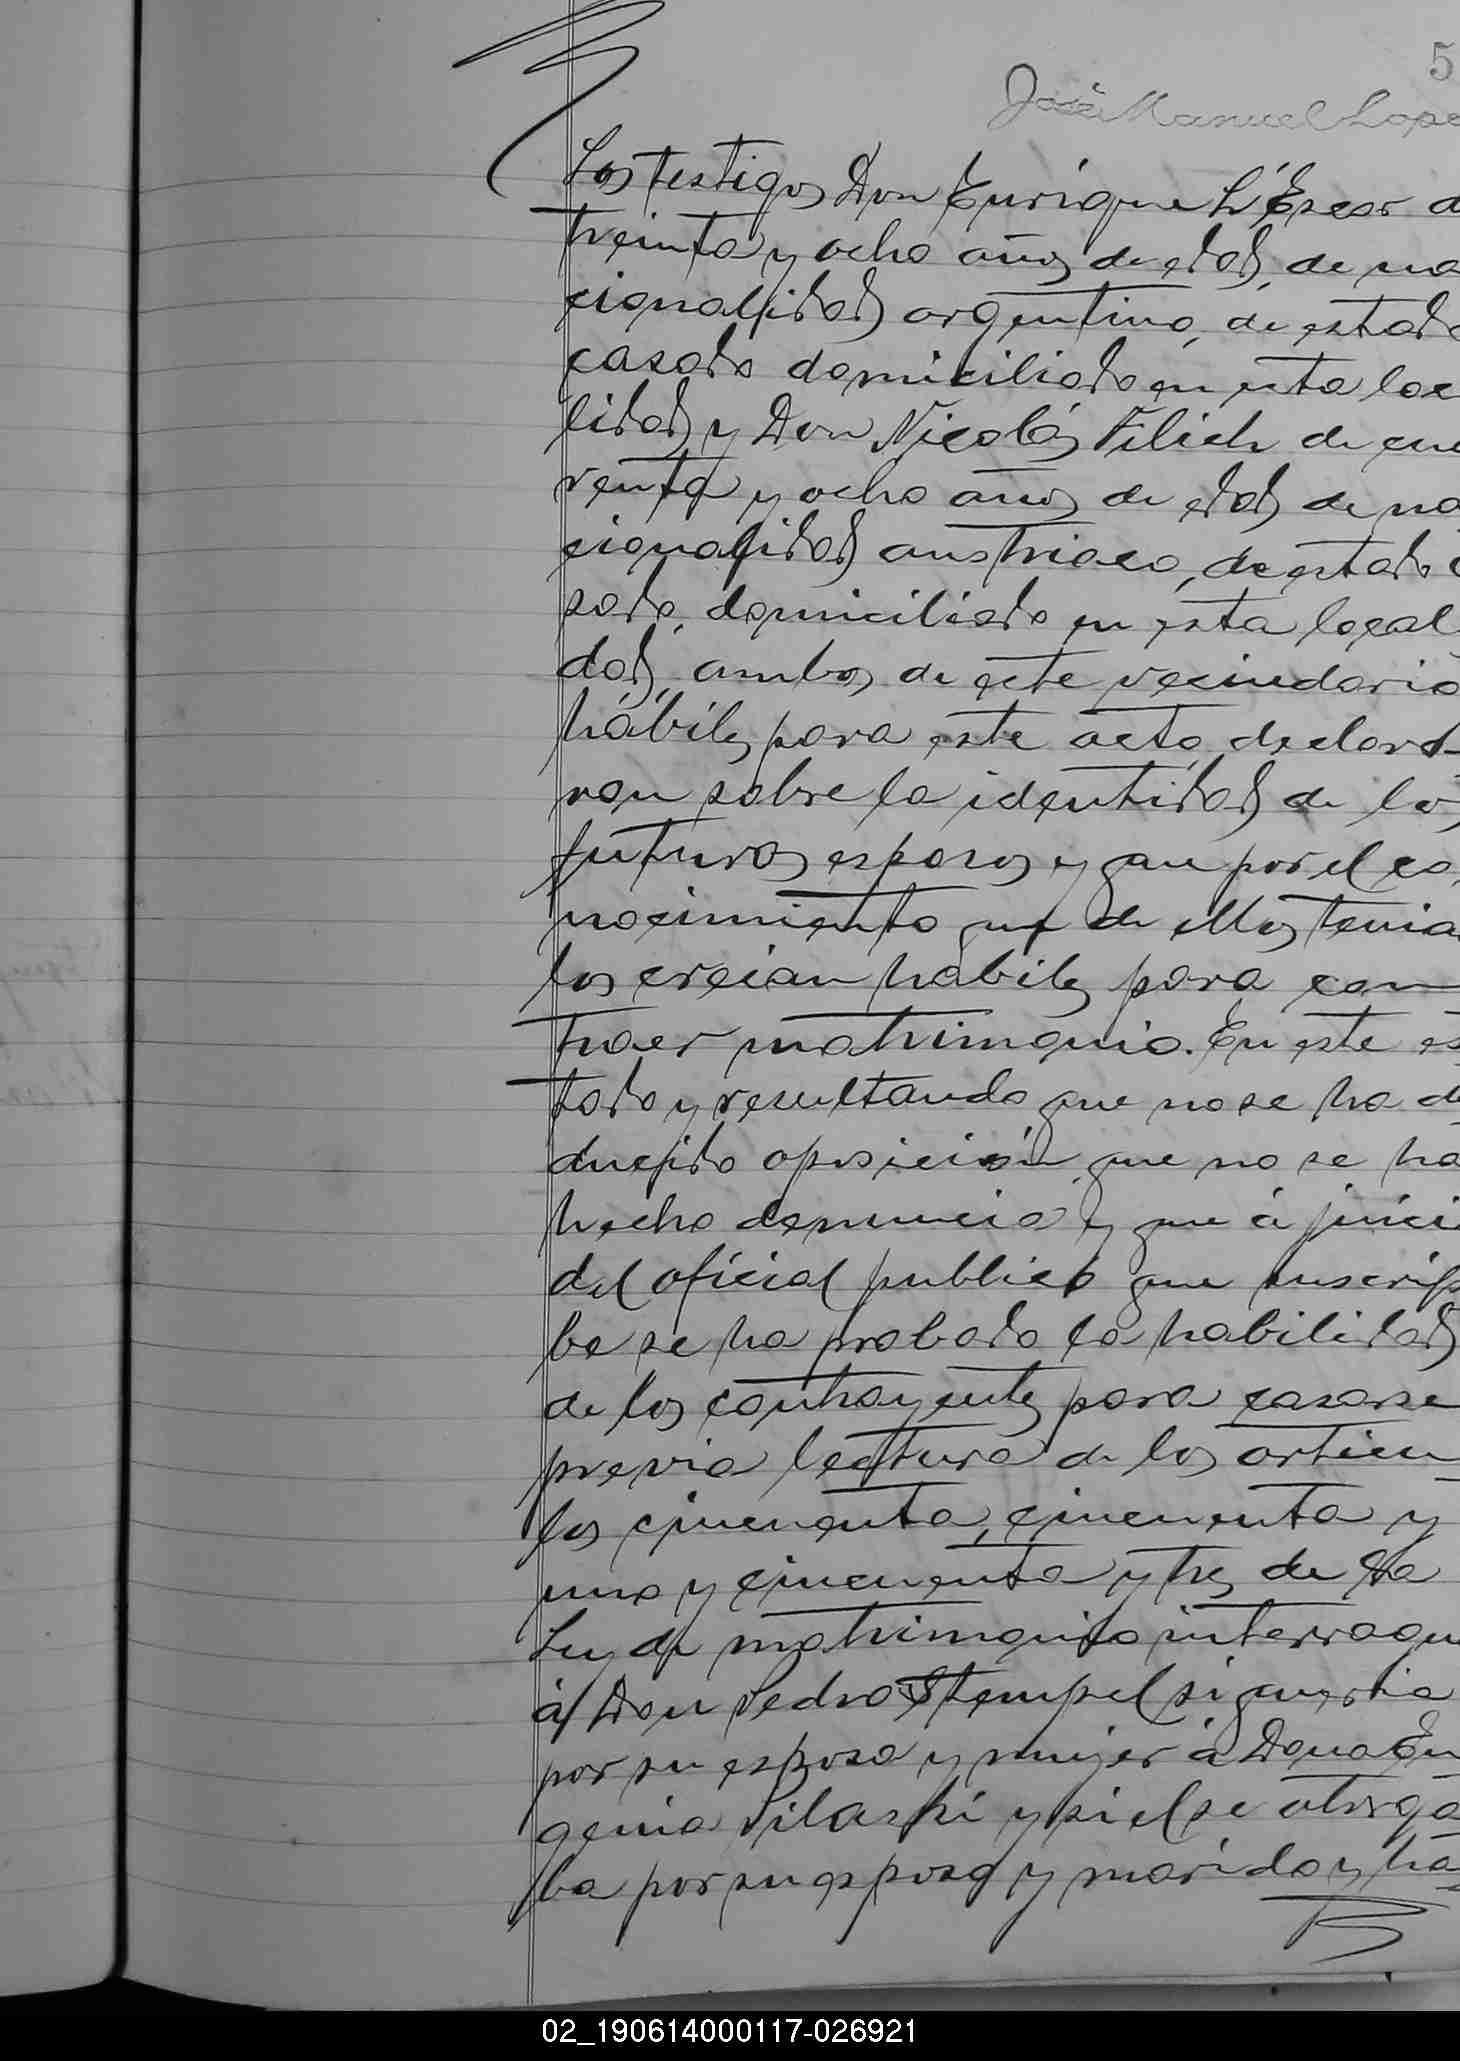 5
José Manuel Lope
Los testigos Don Enrique L'Escar d
treinta y ocho años de edad, de na
cionalidad argentino, de estado
casado domiciliado en esta loca
lidad y Don Nicolás Filich de cua
renta y ocho años de edad de na
cionalidad austriaco, de estado c
sado, domiciliado en esta locali
dad, ambos de este vecindario
hábiles para este acto, declara
ron sobre la identidad de los
futuros esposos y que por el co
nocimiento que de ellos tenia
los creian habiles para con
traer matrimonio. En este es
tado y resultando que no se ha de
ducido oposición, que no se ha
hecho denuncia y que á juici
del oficial publico que suscrip
be se ha probado la habilidad
de los contrayentes para casarse
previa lectura de los articu
los cincuenta, cincuenta y
uno y cincuenta y tres de la
Ley de matrimonio interrogue
á Don Pedro Stempel si queria
por su esposa y mujer á Dona Eu
genia Pilaski y si el se otorga
ba por su esposo y marido y ha
02_190614000117-026921